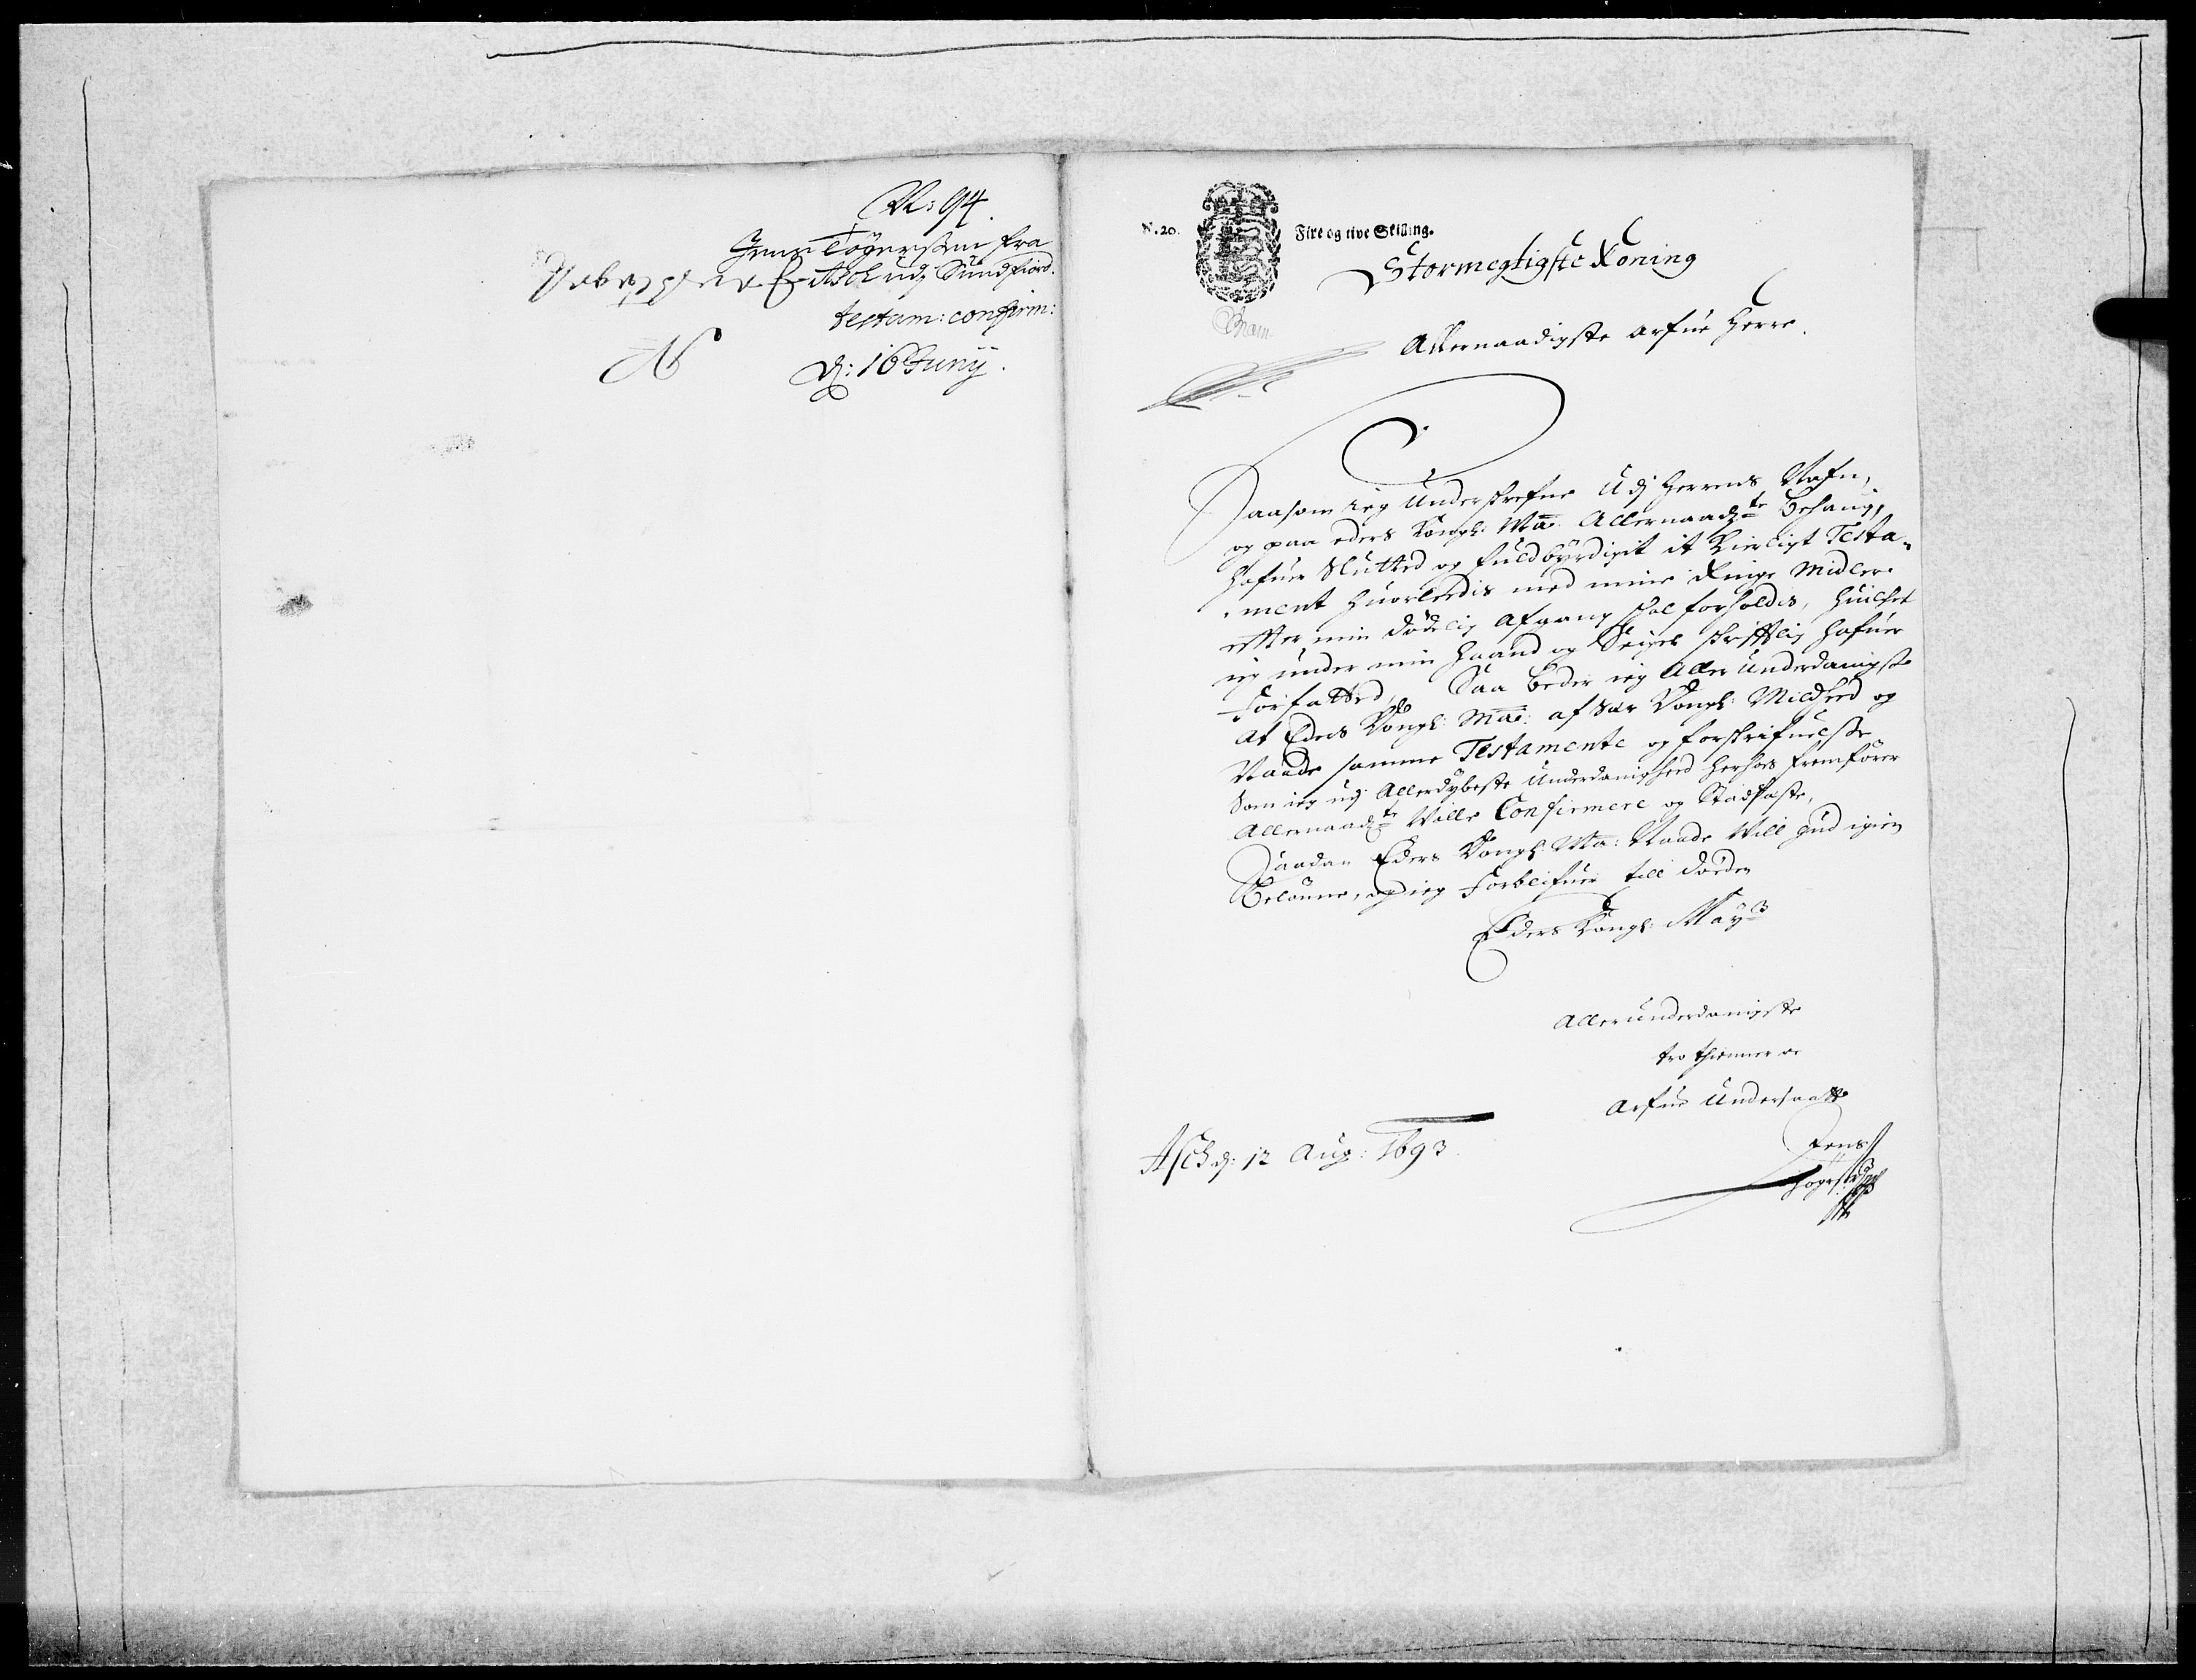 No: 94.
Jens Tøgersen fra
Asch udj Sundfiord.
testam: confirm:
dj: 16 Junij.
N. 20.
Fire og tive Skilling.
Stormegtigste Koning
Allernaadigste Arfue Herre.
Saasom ieg Underskrefne Udj Herrens Nafn,
og paa eders Kongl: Ma: Allernaadigste Behaug,
hafuer Slutted og fuldbyrdigit it Kierligt Testa-
ment huorledis med mine Ringe Midler
effter min dødelig Afgang skal forholdis, huilchet
ieg under min Haand og Seigel skrifftlig hafuer
Forfatted, Saa beder ieg Aller Underdanigste
At Eders Kongl: Ma: af Kongl: Mildhed og
Naade samme Testamente og forskrifuelse
Som ieg udj Allerdybeste Underdanighed herhos fremfører
Allernaadigste Wille Confirmere og Stadfæste,
Saadan Eders Kongl: Ma: Naade Will Gud igien
Belønne, og ieg Forblifuer till døden
Eders Kongl: May
Allerunderdanigste
tro thienner oc
Arfue Undersaatte
Asch dj: 12 Aug: 1693.
Jens